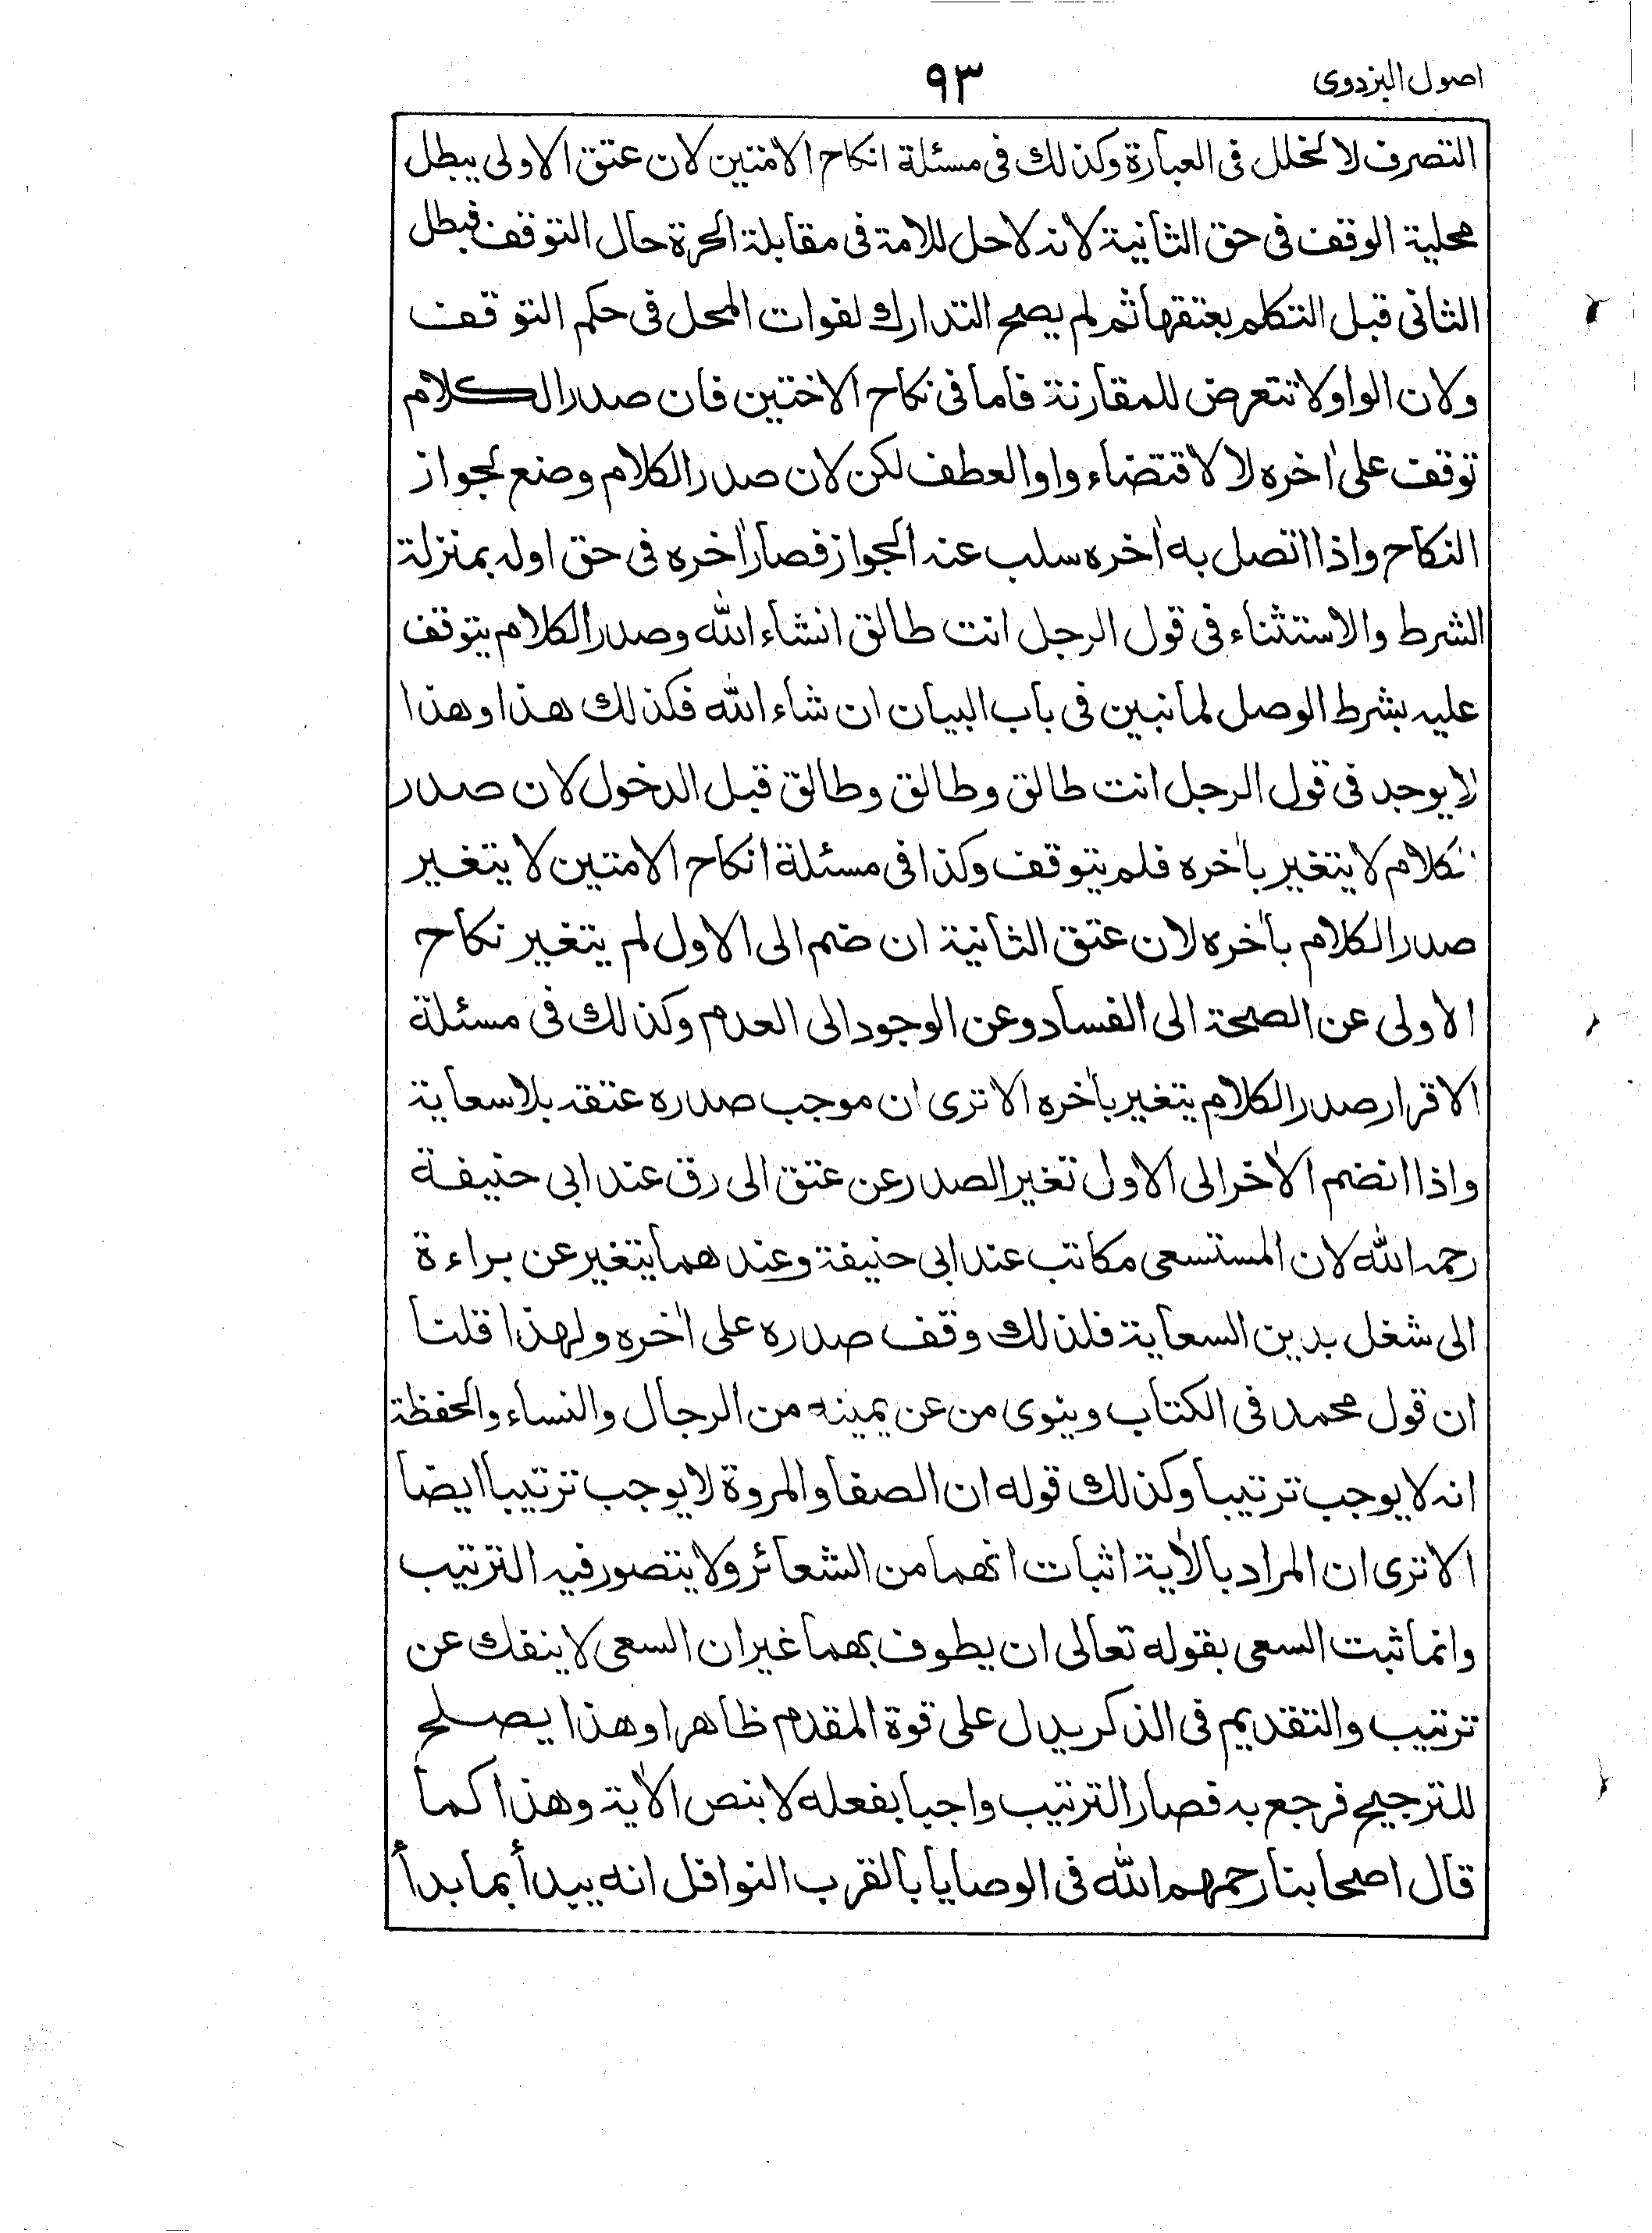 اصول البزدوى
٩٣
التصرف لا لخلل فى العبارة وكذلك فى مسئلة انكاح الامتين لان عتق الاولى يبطل
محلية الوقف فى حق الثانية لانه لاحل للامة فى مقابلة الحرة حال التوقف فبطل
الثانى قبل التكلم بعتقها ثم لم يصح التدارك لفوات المحل فى حكم التوقف
ولان الواو لا تتعرض للمقارنة فاما فى نكاح الاختين فان صدر الكلام
توقف على اٰخره لا لاقتضاء واو العطف لكن لان صدر الكلام وضع لجواز
النكاح واذا اتصل به اٰخره سلب عنه الجواز فصار اٰخره فى حق اوله بمنزلة
الشرط والاستثناء فى قول الرجل انت طالق انشاء الله وصدر الكلام يتوقف
عليه بشرط الوصل لما نبين فى باب البيان ان شاء الله فكذلك هذا وهذا
لا يوجد فى قول الرجل انت طالق وطالق وطالق قبل الدخول لان صدر
الكلام لا يتغير باٰخره فلم يتوقف وكذا فى مسئلة انكاح الامتين لا يتغير
صدر الكلام باٰخره لان عتق الثانية ان ضم الى الاول لم يتغير نكاح
الاولى عن الصحة الى الفساد وعن الوجود الى العدم وكذلك فى مسئلة
الاقرار صدر الكلام يتغير باٰخره الا ترى ان موجب صدره عتقه بلا سعاية
واذا انضم الاٰخر الى الاول تغير الصدر عن عتق الى رق عند ابى حنيفة
رحمه الله لان المستسعى مكاتب عند ابى حنيفة وعندهما يتغير عن براءة
الى شغل بدين السعاية فلذلك وقف صدره على اٰخره ولهذا قلنا
ان قول محمد فى الكتاب وينوى من عن يمينه من الرجال والنساء والحفظة
انه لا يوجب ترتيبا وكذلك قوله ان الصفا والمروة لا يوجب ترتيبا ايضا
الا ترى ان المراد بالاٰية اثبات انهما من الشعائر ولا يتصور فيه الترتيب
وانما ثبت السعى بقوله تعالى ان يطوف بهما غير ان السعى لا ينفك عن
ترتيب والتقديم فى الذكر يدل على قوة المقدم ظاهرا وهذا يصلح
للترجيح فرجح به فصار الترتيب واجبا بفعله لا بنص الاٰية وهذا كما
قال اصحابنا رحمهم الله فى الوصايا بالقرب النوافل انه يبدأ بما بدأ